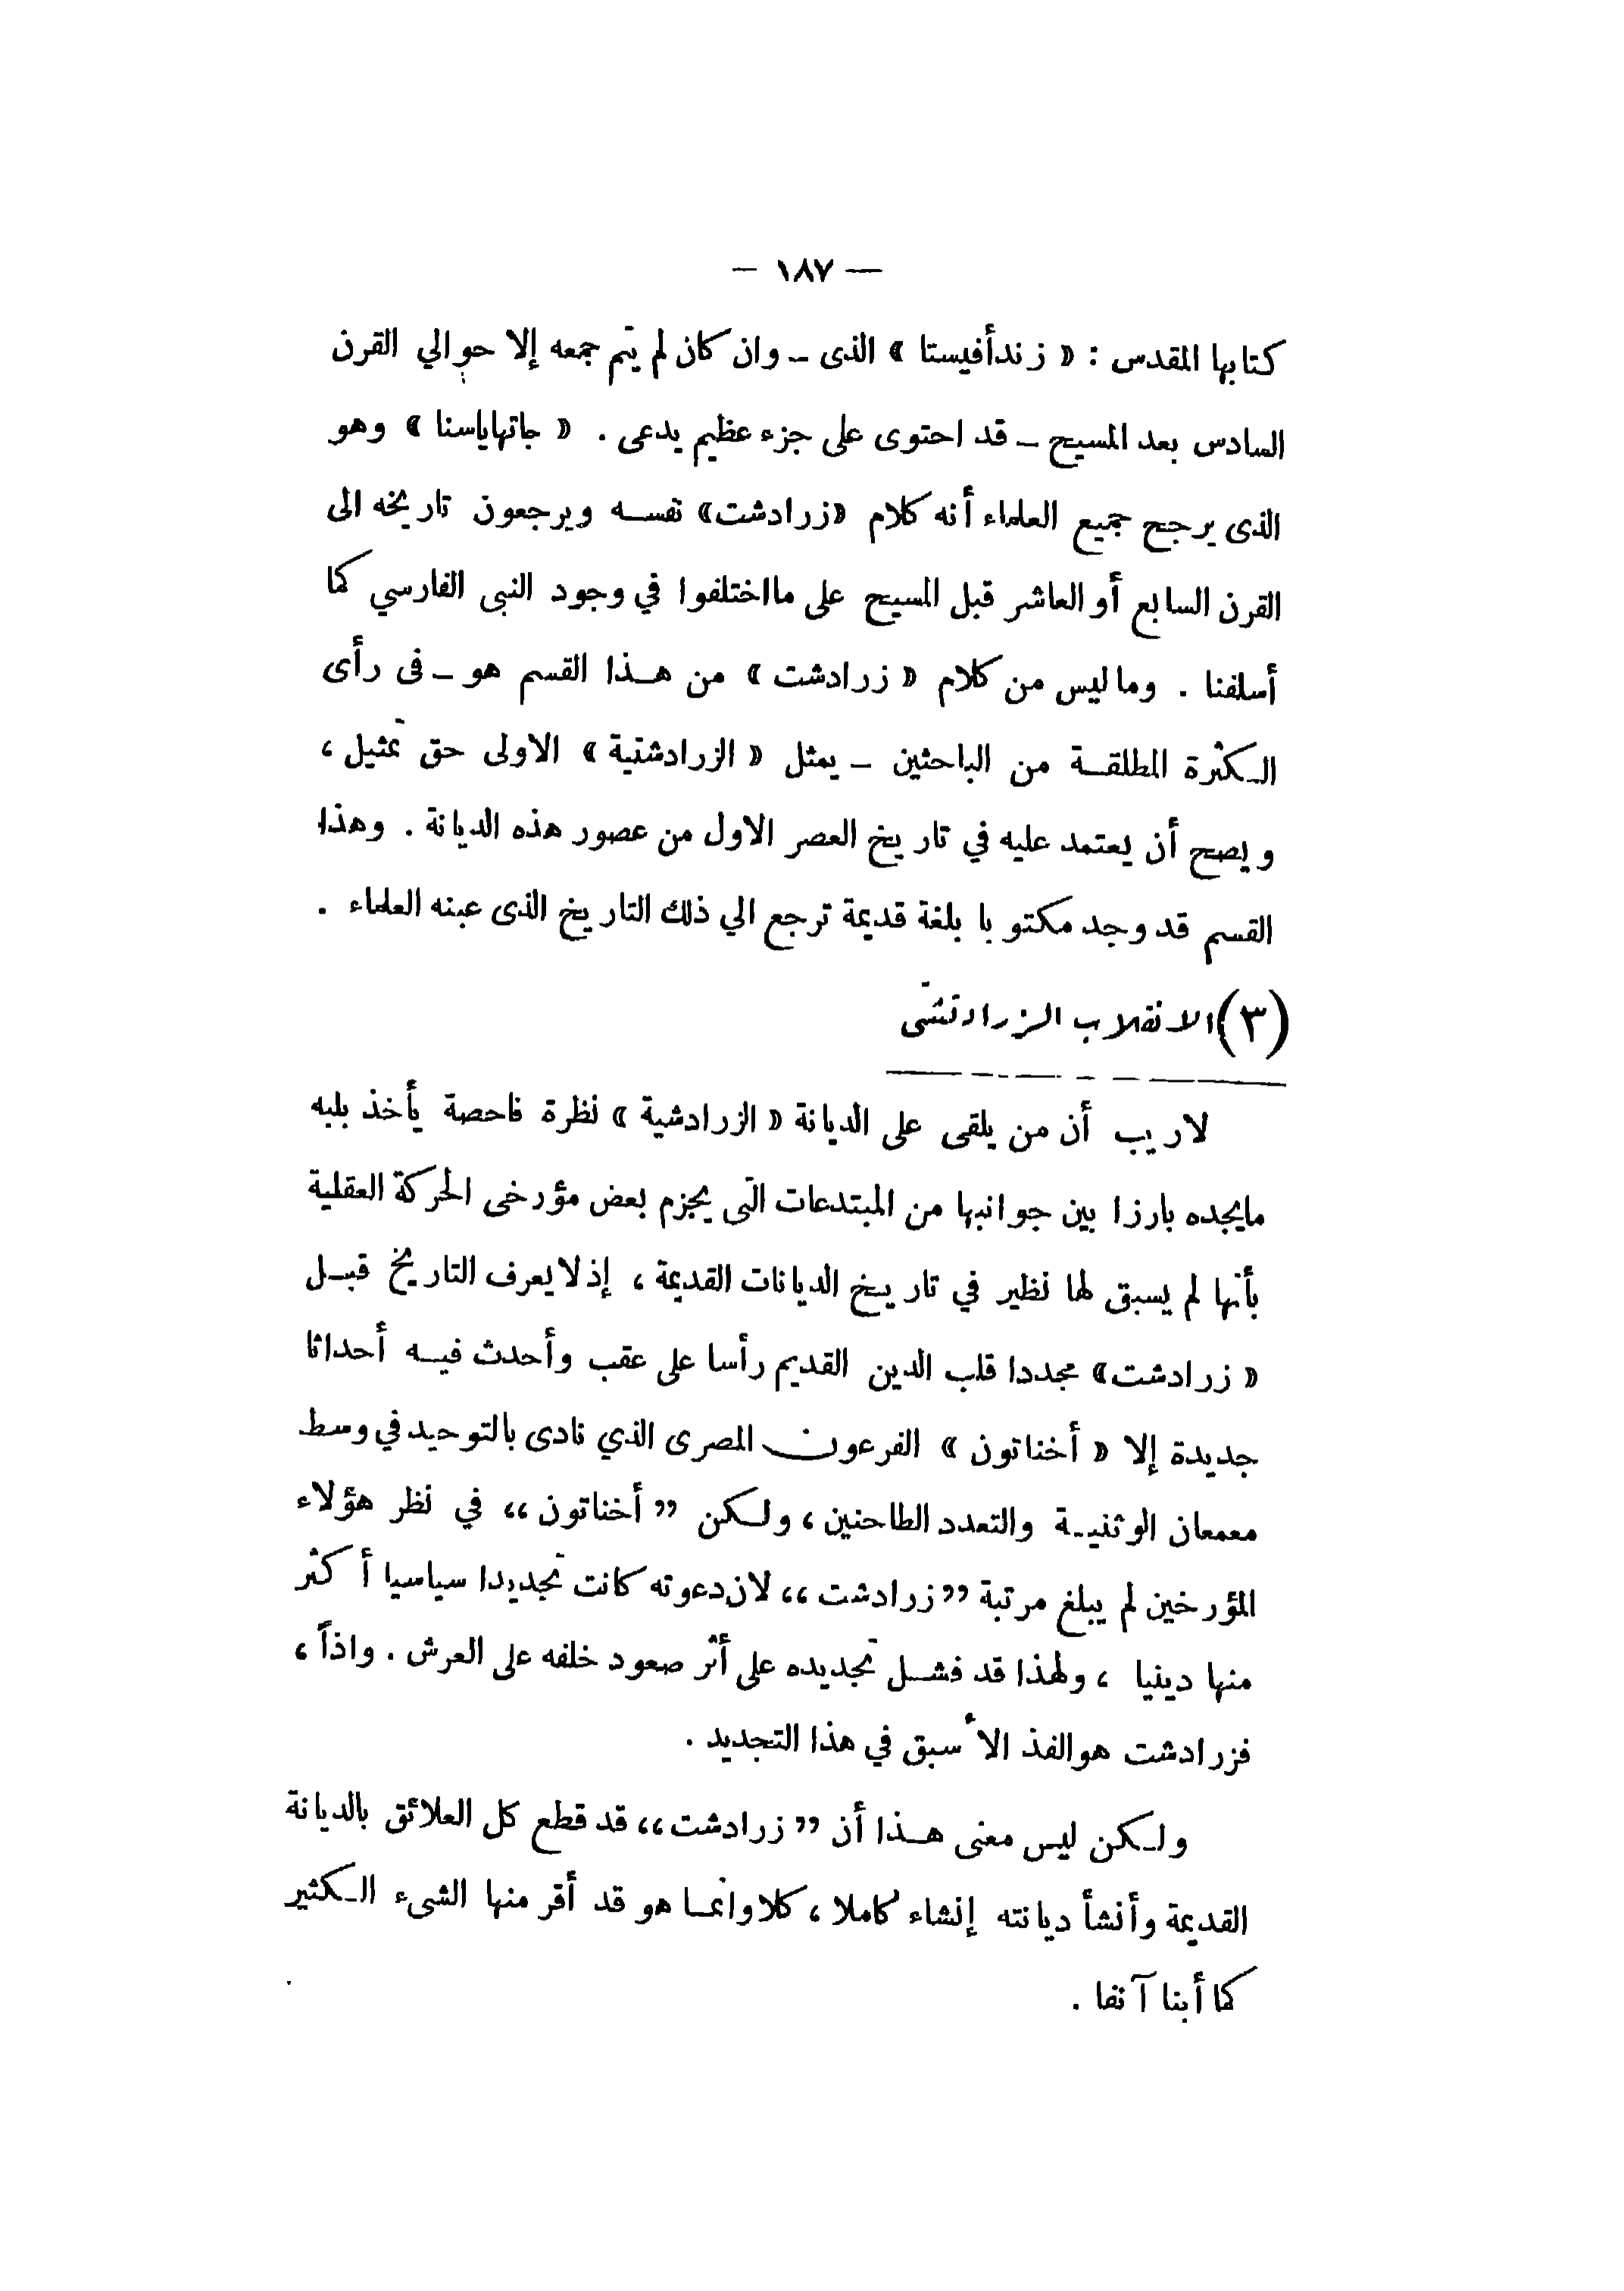 — ١٨٧ —
كتابها المقدس : « زندأفيستا » الذى ـ وان كان لم يتم جمعه إلا حوالي القرن
السادس بعد المسيح ـ قد احتوى على جزء عظيم يدعى . « جاتهاياسنا » وهو
الذى يرجح جميع العلماء أنه كلام «زرادشت» نفسه ويرجعون تاريخه الى
القرن السابع أو العاشر قبل المسيح على مااختلفوا في وجود النبى الفارسي كما
أسلفنا . وما ليس من كلام « زرادشت » من هـذا القسم هو ـ فى رأى
الـكثرة المطلقـة من الباحثين ـ يمثل « الزرادشتية » الاولى حق تمثيل ،
ويصح أن يعتمد عليه في تاريخ العصر الاول من عصور هذه الديانة . وهذا
القسم قد وجد مكتوبا بلغة قديمة ترجع الي ذلك التاريخ الذى عينه العلماء .
(٣) الانقلاب الزرادتشى
لاريب أن من يلقى على الديانة « الزرادشية » نظرة فاحصة يأخذ بلبه
مايجده بارزا بين جوانبها من المبتدعات التى يجزم بعض مؤرخى الحركة العقلية
بأنها لم يسبق لها نظير في تاريخ الديانات القديمة ، إذ لايعرف التاريخ قبـل
« زرادشت» مجددا قلب الدين القديم رأسا على عقب وأحدث فيـه أحداثا
جديدة إلا « أخناتون » الفرعون المصرى الذي نادى بالتوحيد في وسط
معمعان الوثنيـة والتعدد الطاحنين ، ولـكن ” أخناتون “ في نظر هؤلاء
المؤرخين لم يبلغ مرتبة ” زرادشت “ لان دعوته كانت تجديدا سياسيا أكثر
منها دينيا ، ولهذا قد فشـل تجديده على أثر صعود خلفه على العرش . واذاً ،
فزرادشت هوالفذ الأسبق في هذا التجديد .
ولـكن ليس معنى هـذا أن ” زرادشت “ قد قطع كل العلائق بالديانة
القديمة وأنشأ ديانته إنشاء كاملا ، كلا وانمـا هو قد أقر منها الشىء الـكثير
كما أبنا آنفا .